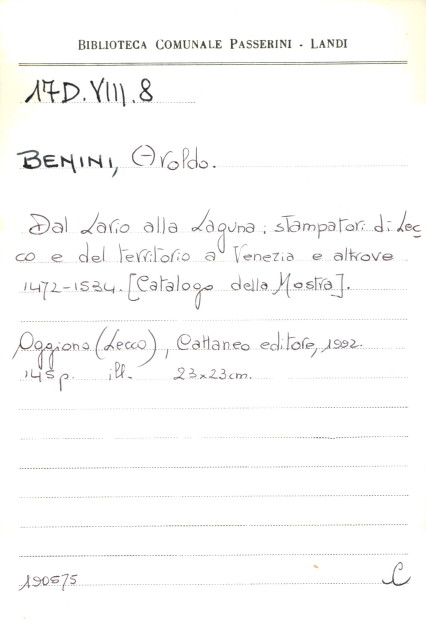 BIBLIOTECA COMUNALE PASSERINI - LANDI
17D.VIII.8
BENINI, Aroldo.
Dal Lario alla Laguna; stampatori di Lec
co e del territorio a Venezia e altrove
1472-1534. [Catalogo della Mostra].
Oggiono (Lecco), Cattaneo editore, 1992.
145p. ill. 23x23cm.
190575
C